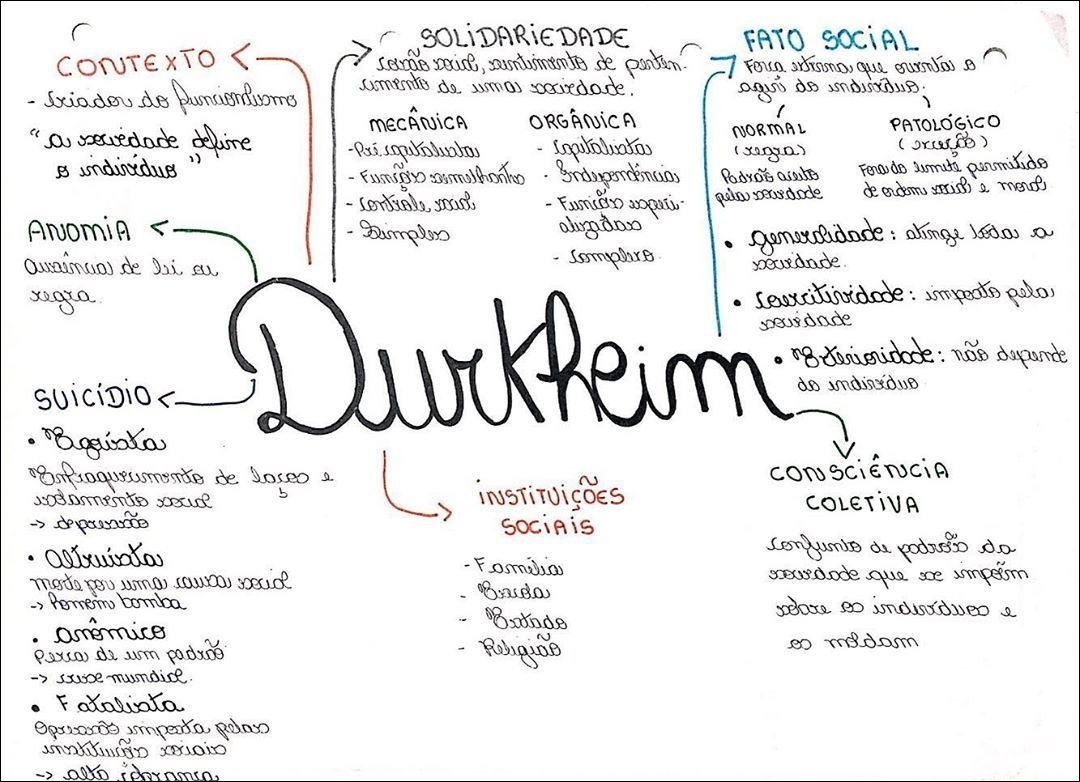 CONTEXTO
- Criador do funcionalismo
"a sociedade define
o indivíduo"
SOLIDARIEDADE
Coesão social, sentimento de perten-
cimento de uma sociedade.
MECÂNICA
- Pré capitalista
- Função semelhantes
- Controle social
- Simples
ORGÂNICA
- Capitalista
- Independência
- Funções especi-
alizadas
- Complexo
FATO SOCIAL
Força externa que orienta o
agir do indivíduo.
NORMAL
(regra)
Padrões aceito
pela sociedade
PATOLÓGICO
(exceção)
Fora do limite permitido
de ordem social e moral
• generalidade: atinge toda a
sociedade.
• Coercitividade: imposto pela
sociedade
• Exterioridade: não depende
do indivíduo.
ANOMIA
Ausência de lei ou
regra.
Durkheim
SUICÍDIO
• Egoísta
Enfraquecimento de laços e
isolamento social
-> depressão
• Altruísta
Morte por uma causa social
-> homem bomba
• anômico
Perca de um padrão
-> crise mundial.
• Fatalista
Opressão imposta pelas
instituições sociais
-> alta cobrança
INSTITUIÇÕES
SOCIAIS
- Família
- Escola
- Estado
- Religião
CONSCIÊNCIA
COLETIVA
Conjunto de padrões da
sociedade que se impõem
sobre os indivíduos e
os moldam